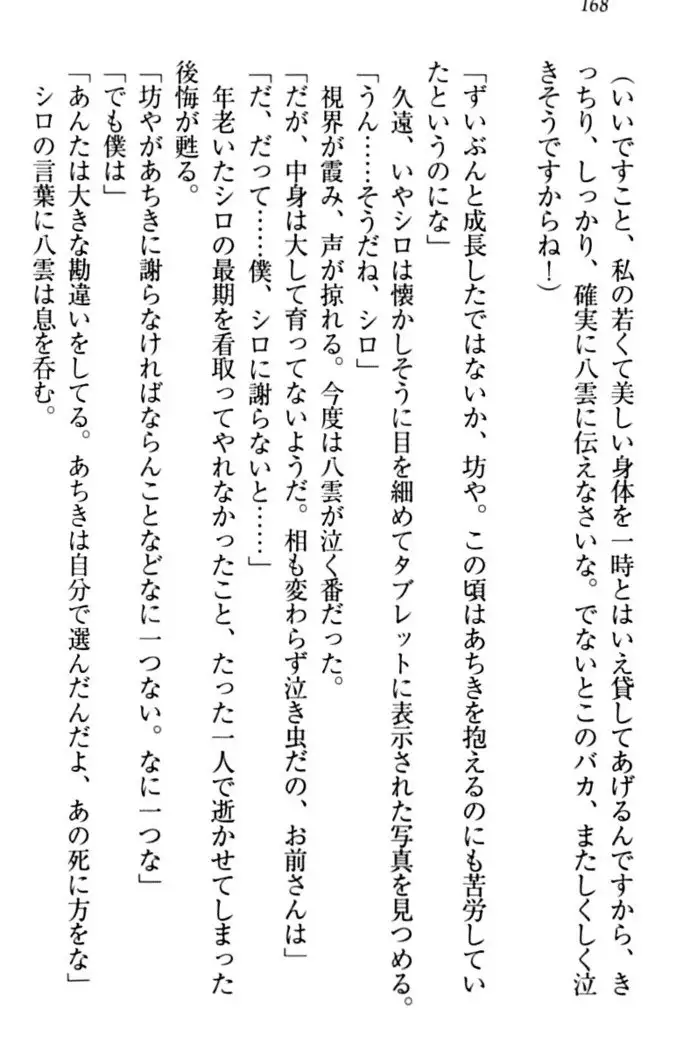 168
(いいですこと、私の若くて美しい身体を一時とはいえ貸してあげるんですから、き
っちり、しっかり、確実に八雲に伝えなさいな。でないとこのバカ、またしくしく泣
きそうですからね！)
「ずいぶんと成長したではないか、坊や。この頃はあちきを抱えるのにも苦労してい
たというのにな」
久遠、いやシロは懐かしそうに目を細めてタブレットに表示された写真を見つめる。
「うん……そうだね、シロ」
視界が霞み、声が掠れる。今度は八雲が泣く番だった。
「だが、中身は大して育ってないようだ。相も変わらず泣き虫だの、お前さんは」
「だ、だって……僕、シロに謝らないと……」
年老いたシロの最期を看取ってやれなかったこと、たった一人で逝かせてしまった
後悔が甦る。
「坊やがあちきに謝らなければならんことなどなに一つない。なに一つな」
「でも僕は」
「あんたは大きな勘違いをしてる。あちきは自分で選んだんだよ、あの死に方をな」
シロの言葉に八雲は息を呑む。